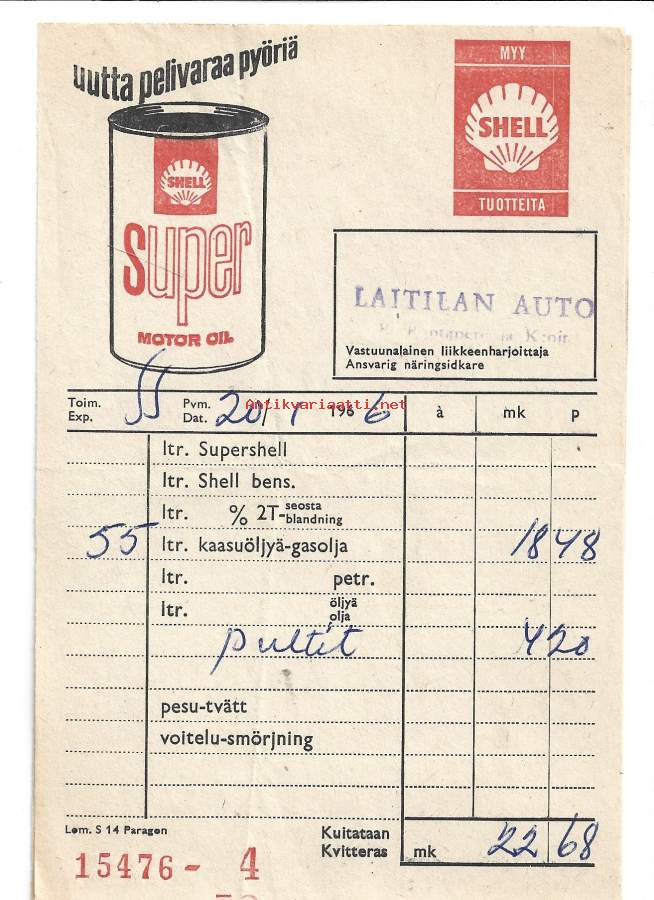 uutta pelivaraa pyöriä
MYY
SHELL
TUOTTEITA
SHELL
super
MOTOR OIL
LAITILAN AUTO
Vastuunalainen liikkeenharjoittaja
Ansvarig näringsidkare
Toim. Pvm. 20/1 1966 à mk p
Exp. Dat.
Antikvariaatti.net
ltr. Supershell
ltr. Shell bens.
ltr. % 2T-seosta blandning
55 ltr. kaasuöljyä-gasolja 18 48
ltr. petr.
ltr. öljyä olja
pultit 4 20
pesu-tvätt
voitelu-smörjning
Lom. S 14 Paragon
Kuitataan
Kvitteras mk 22 68
15476 - 4